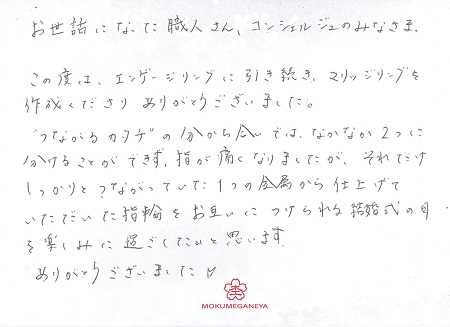 お世話になった職人さん、コンシェルジュのみなさま、
この度は、エンゲージリングに引き続き、マリッジリングを
作成くださりありがとうございました。
"つながるカタチ"の分かち合いでは、なかなか2つに
分けることができず、指が痛くなりましたが、それだけ
しっかりとつながっていた1つの金属から仕上げて
いただいた指輪をお互いにつけられる結婚式の日
を楽しみに過ごしたいと思います。
ありがとうございました♡
MOKUMEGANEYA